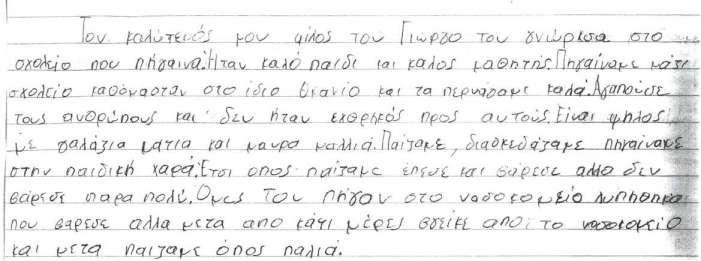 Τον καλύτενός μου φίλος τον Γιώργο τον γνώρισα στο
σχολείο που πήγαινα. Ήταν καλό παιδί και καλος μαθητής. Πηγαίναμε μάτι
σχολείο καθόμασταν στο ίδιο θκανίο και τα περνάσαμε καλά. Αγαπούσε
τους ανθρώπους και δεν ήταν εχθρηκός προς αυτούς. Είναι ψηλος
με γαλάζια ματια και μαυρα μαλλιά. Παίζαμε, διασκεδάζαμε πηγαίναμε
στην παιδική χαρά. Ετσι οπος παίζαμε έπεσε και βάρεσε αλλο δεν
βάρεσε παρα πολύ. Ομες Τον πήγαν στο νοσοκομείο λυπήθηκα
που βαρεσε αλλα μετα απο κάτι μέρες βγείκε από το νοσοκομείο
και μετα παιζαμε όπος παλιά.